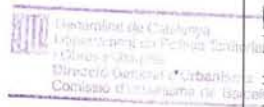 Generalitat de Catalunya
Departament de Política Territorial
i Obres Públiques
Direcció General d'Urbanisme
Comissió d'Urbanisme de Barcel